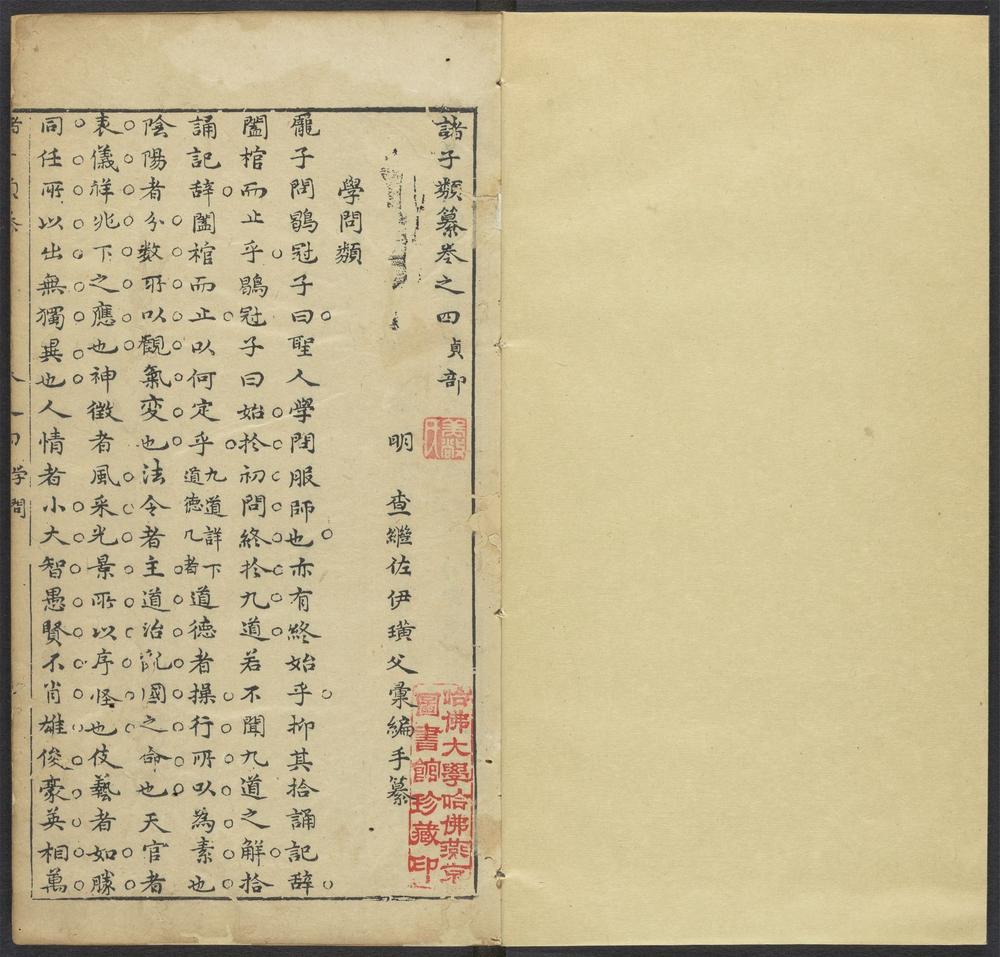 諸子類纂卷之四貞部
明　查繼佐伊璜父彙編手纂
學問類
龐子問鶡冠子曰聖人學問服師也亦有終始乎抑其拾誦記辞
闔棺而止乎鶡冠子曰始於初問終於九道若不聞九道之解拾
誦記辞闔棺而止以何定乎九道詳下道德几者道德者操行所以為素也
陰陽者分數所以觀氣変也法令者主道治亂國之命也天官者
表儀祥兆下之應也神徵者風采光景所以序怪也伎藝者如勝
同任所以出無獨異也人情者小大智愚賢不肖雄俊豪英相萬
學問
哈佛大學哈佛燕京
圖書館珍藏印